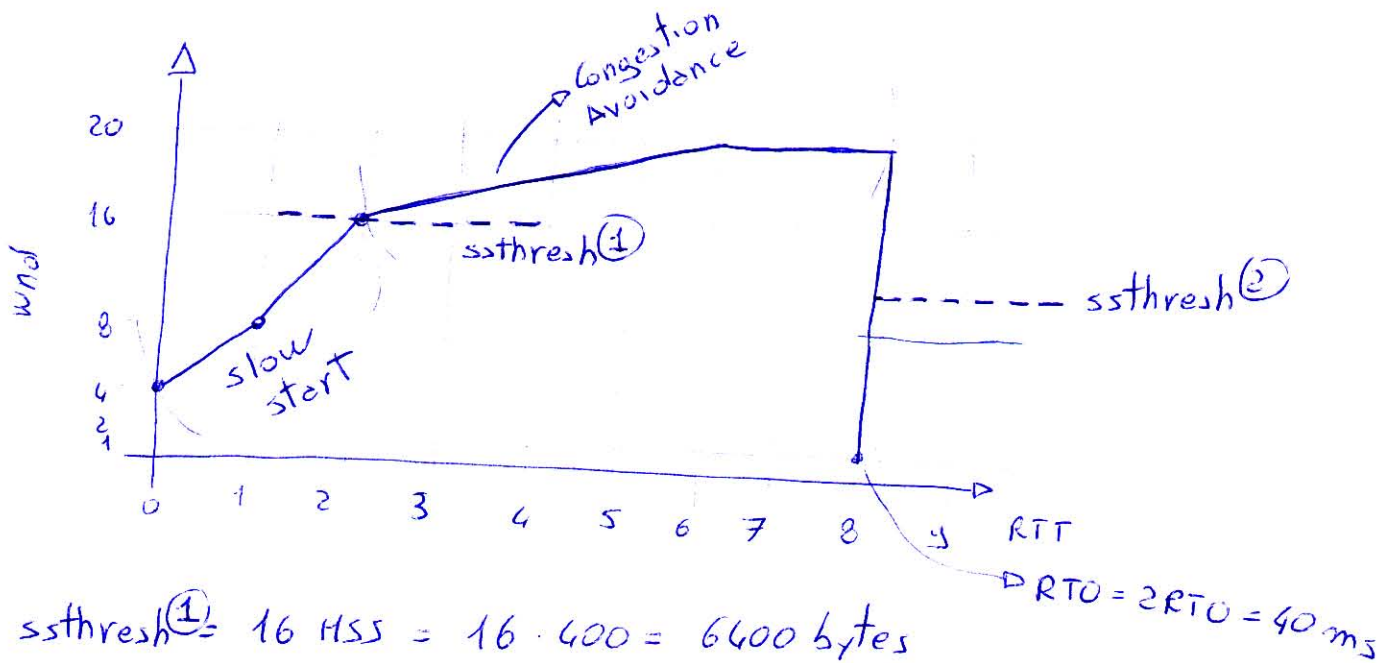 Congestion
Avoidance
20
16
ssthresh ①
wnd
8
slow
start
ssthresh ②
4
2
1
0 1 2 3 4 5 6 7 8 9 RTT
RTO = 2RTO = 40 ms
ssthresh ① = 16 MSS = 16 · 400 = 6400 bytes